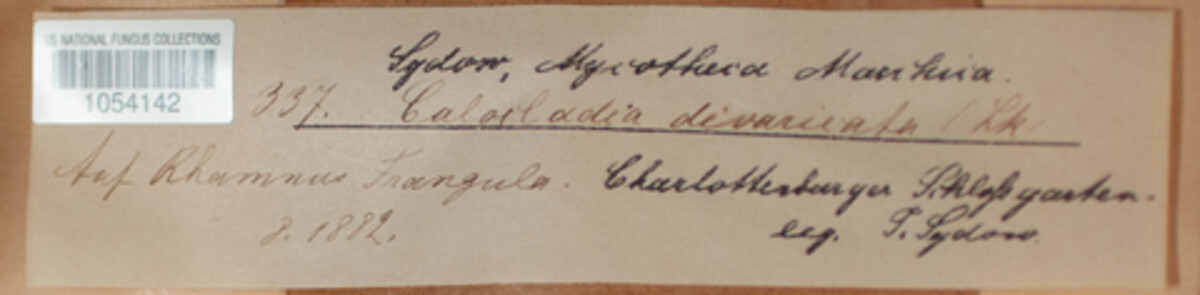 US NATIONAL FUNGUS COLLECTIONS
1054142
Sydow, Mycotheca Marchica.
337. Calocladia divaricata (Lk
Auf Rhamnus Frangula. Charlottenburger Schloßgarten.
8. 1882. leg. P. Sydow.